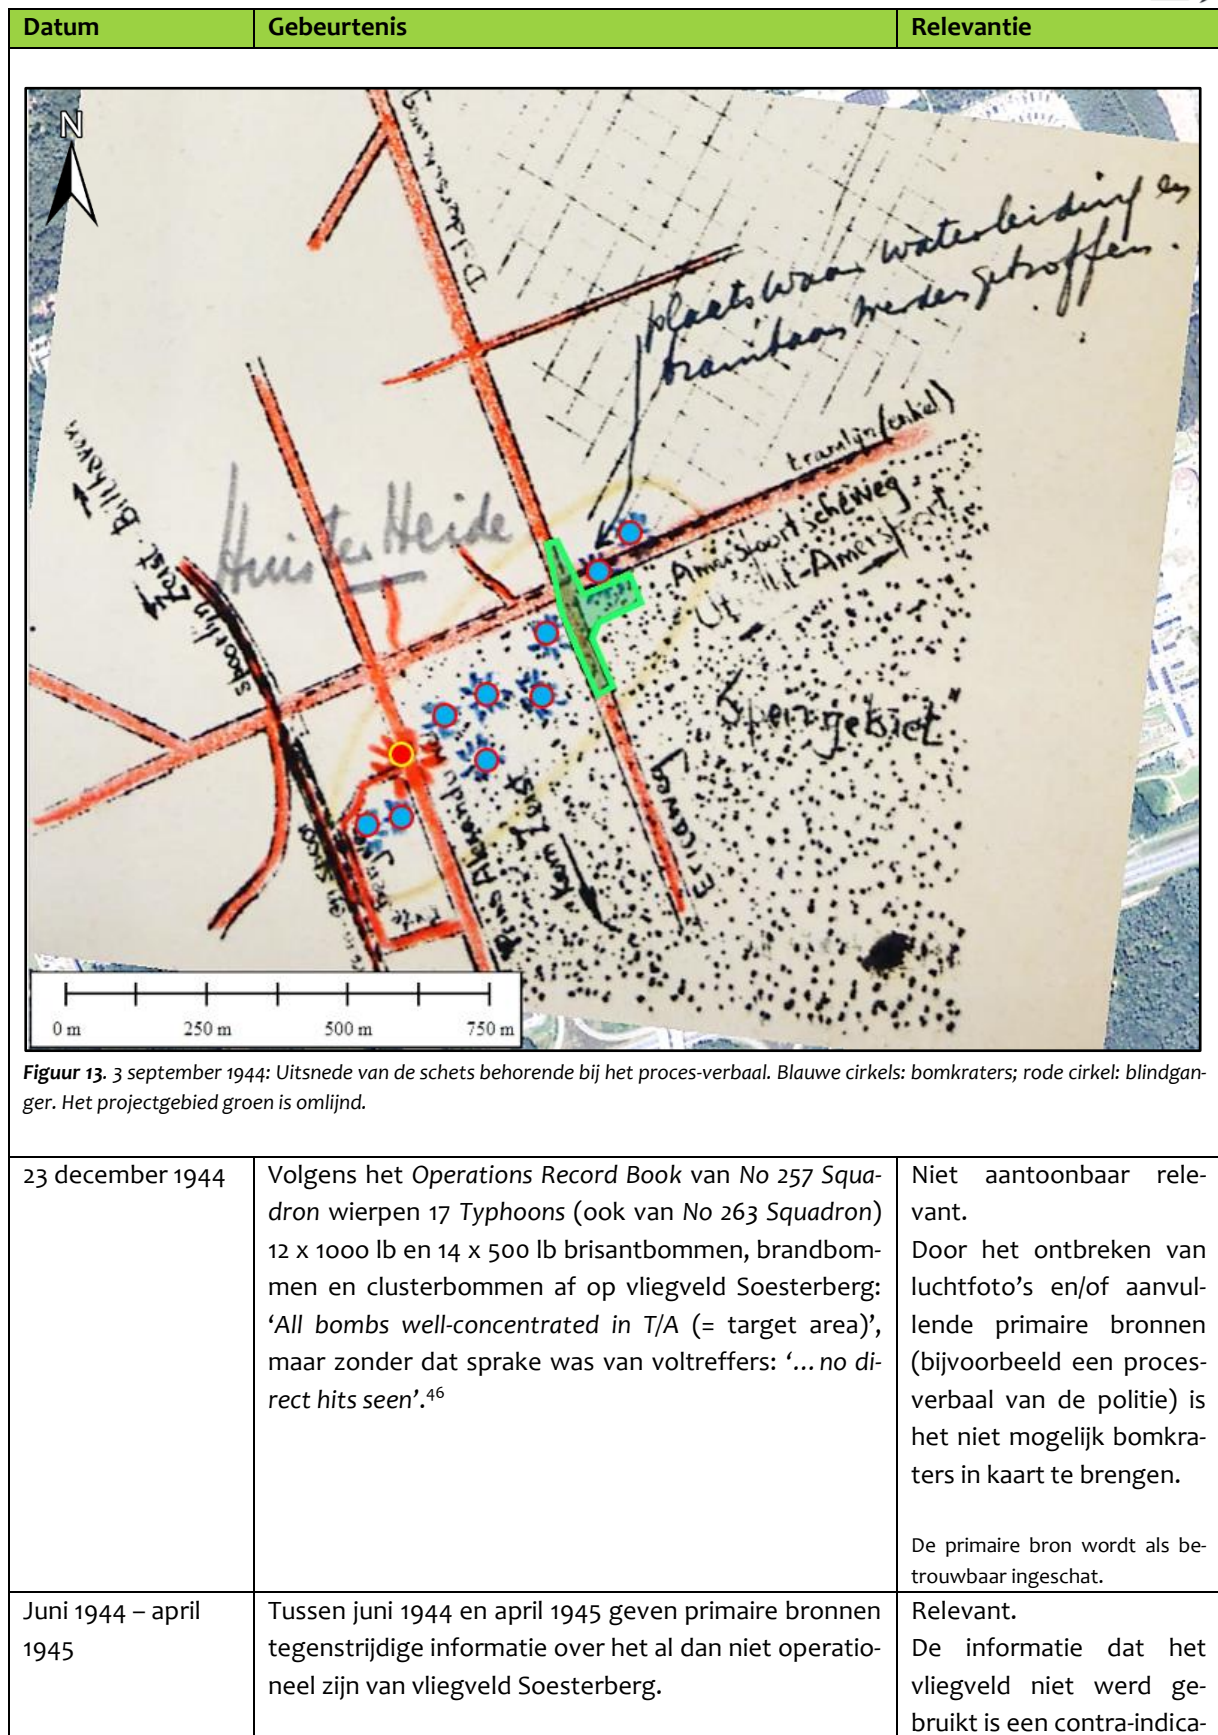 Datum Gebeurtenis Relevantie
N
Dolderscheweg
plaats waar waterleiding en
trambaan werden getroffen.
tramlijn (enkel)
Bilthoven
Zeist
spoorlijn
Huis ter Heide
Amersfoortscheweg
Utrecht-Amersfoort
Sperrgebiet
Ericaweg
Kom Zeist
0 m 250 m 500 m 750 m
Figuur 13. 3 september 1944: Uitsnede van de schets behorende bij het proces-verbaal. Blauwe cirkels: bomkraters; rode cirkel: blindgan-
ger. Het projectgebied groen is omlijnd.
23 december 1944
Volgens het Operations Record Book van No 257 Squa-
dron wierpen 17 Typhoons (ook van No 263 Squadron)
12 x 1000 lb en 14 x 500 lb brisantbommen, brandbom-
men en clusterbommen af op vliegveld Soesterberg:
‘All bombs well-concentrated in T/A (= target area)’,
maar zonder dat sprake was van voltreffers: ‘…no di-
rect hits seen’.46
Niet aantoonbaar rele-
vant.
Door het ontbreken van
luchtfoto’s en/of aanvul-
lende primaire bronnen
(bijvoorbeeld een proces-
verbaal van de politie) is
het niet mogelijk bomkra-
ters in kaart te brengen.
De primaire bron wordt als be-
trouwbaar ingeschat.
Juni 1944 – april
1945
Tussen juni 1944 en april 1945 geven primaire bronnen
tegenstrijdige informatie over het al dan niet operatio-
neel zijn van vliegveld Soesterberg.
Relevant.
De informatie dat het
vliegveld niet werd ge-
bruikt is een contra-indica-